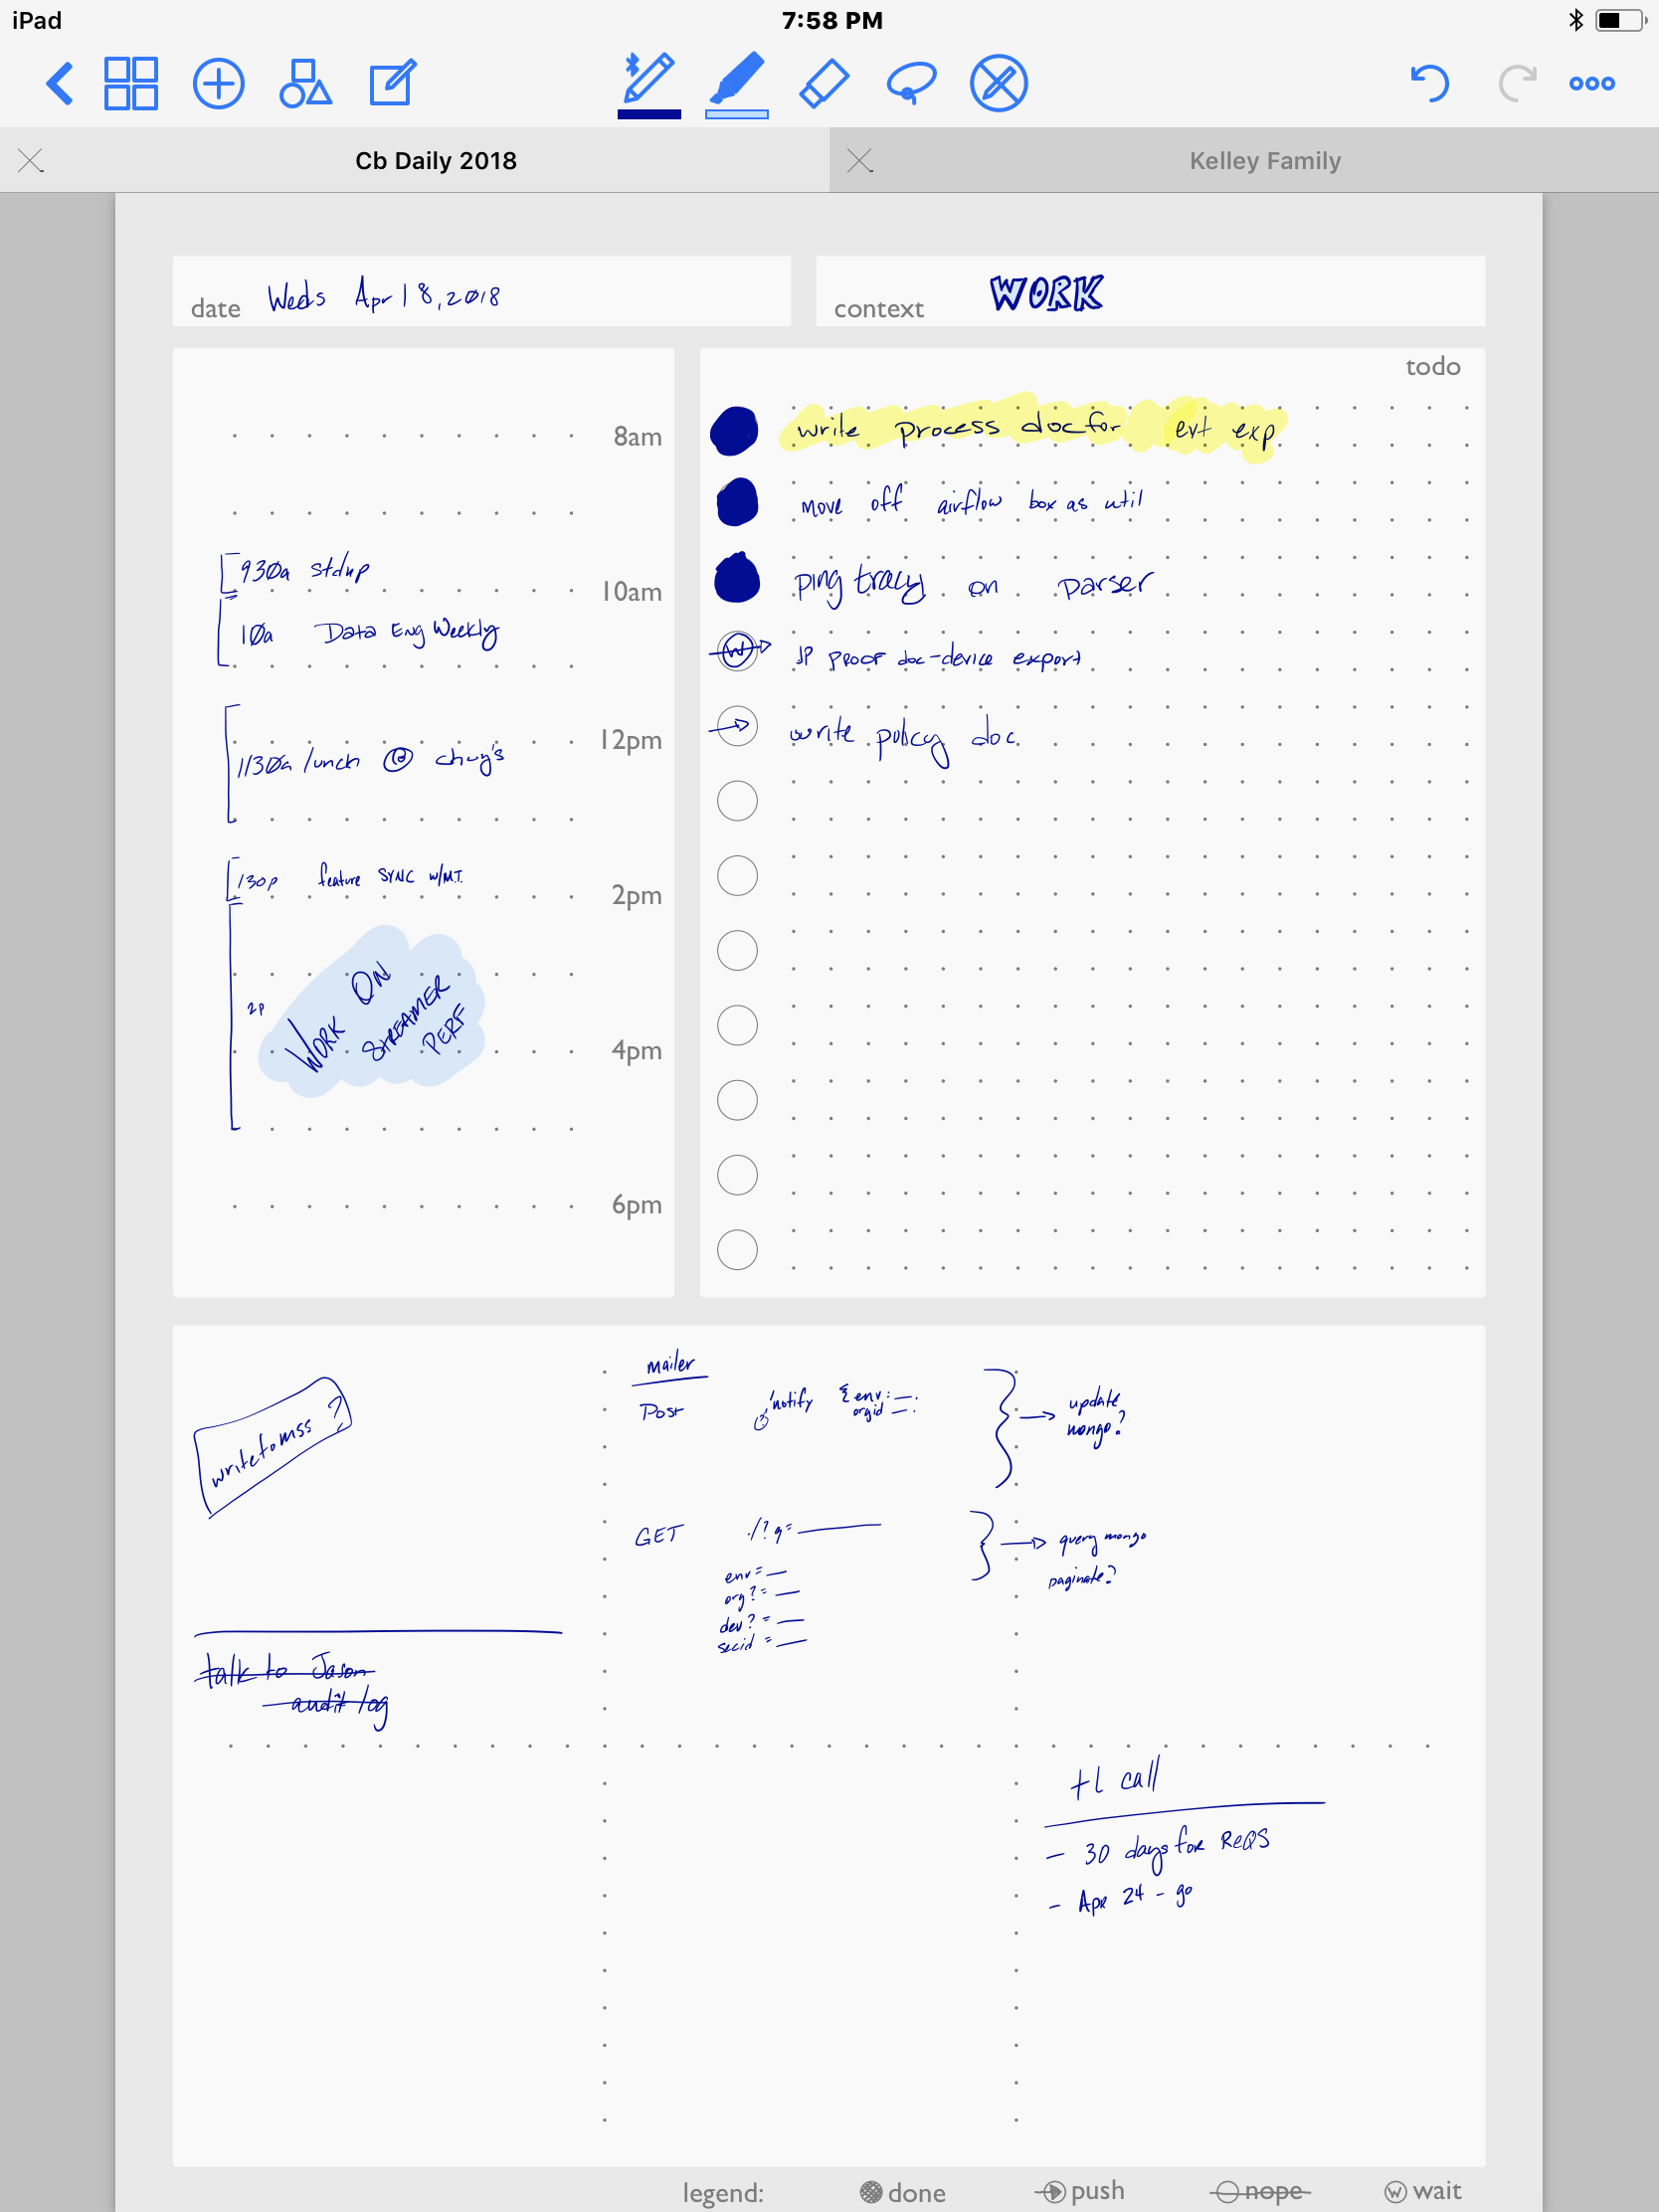 iPad
7:58 PM
Cb Daily 2018
Kelley Family
date Weds Apr 18, 2018
context WORK
8am
930a stdup
10am
10a Data Eng Weekly
12pm
1130a lunch @ chuy's
130p feature SYNC w/M.T.
2pm
2p
WORK ON
STREAMER
PERF
4pm
6pm
todo
write process doc for evt exp
move off airflow box as util
ping tracy on parser
W JP PROOF doc-device export
write policy doc
write to mss ?
talk to Jason
audit log
mailer
Post /notify { env: —:
orgid —:
update
mongo?
GET ./? q=
env=
org?=
dev?=
secid=
query mongo
paginate?
tl call
- 30 days for REQS
- Apr 24 - go
legend: done push nope W wait